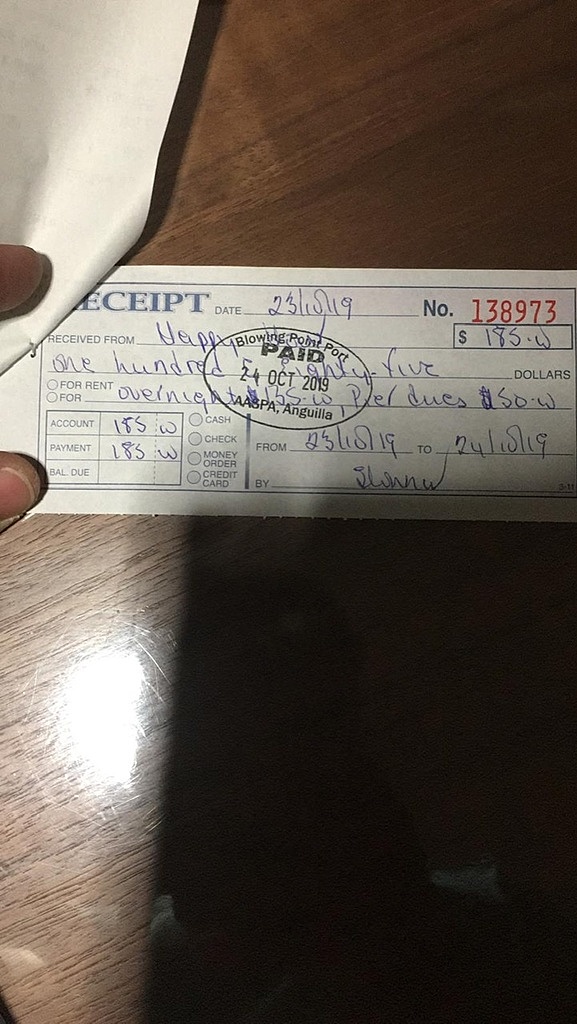 ECEIPT DATE 23/10/19 No. 138973
$ 185.00
RECEIVED FROM Happy
one hundred & eighty-five DOLLARS
FOR RENT
FOR overnight $135.00, Pier dues $50.00
Blowing Point Port
PAID
24 OCT 2019
AASPA, Anguilla
ACCOUNT 185 00
PAYMENT 185 00
BAL. DUE
CASH
CHECK
MONEY ORDER
CREDIT CARD
FROM 23/10/19 TO 24/10/19
BY
3-11